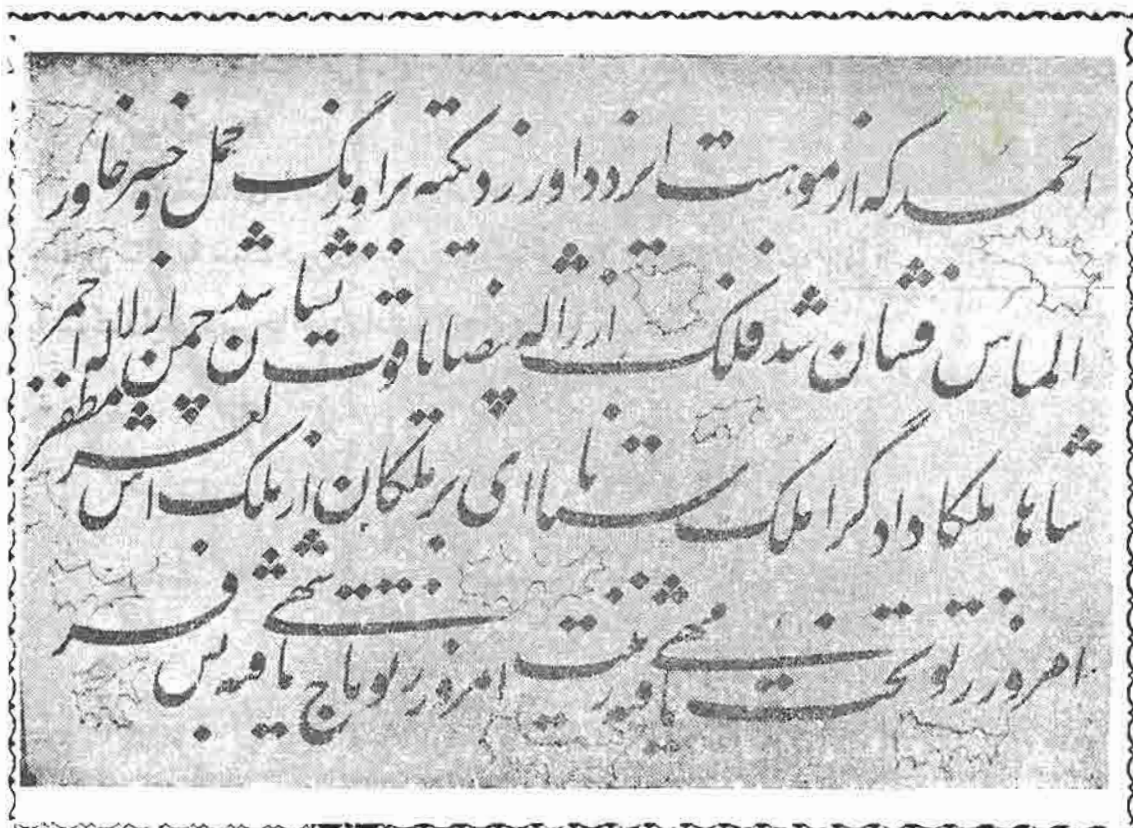 الحمد که از موهبت ایزد داور زد تکیه بر اورنگ حمل خسرو خاور
الماس فشان شد فلک از ژاله بیضا یاقوت نشان شد چمن از لاله احمر
شاها ملکا دادگرا ملک ستانا ای بر ملکان از ملک العرش مظفر
امروز ز تو تخت مهی یافته زینت امروز ز تو تاج شهی یافته بس فر